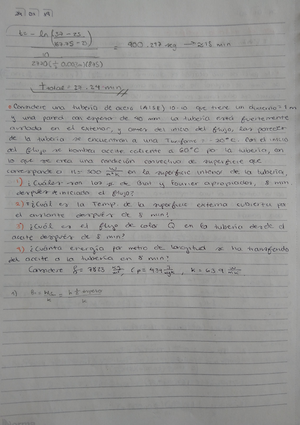 24 | 05 | 19
= 933,297 seg → 2018 min
t total = 27.29 min //
• Considere una tubería de acero (AISI) 10-10 que tiene un diámetro = 1 m
y una pared con espesor de 40 mm. La tubería está fuertemente
aislada en el exterior, y antes del inicio del flujo, las paredes
de la tubería se encuentran a una Tuniforme = -20°C. Con el inicio
del flujo se bombea aceite caliente a 60°C por la tubería, en
lo que se crea una condición convectiva de superficie que
corresponde a h = 500 en la superficie interior de la tubería,
1) ¿Cuáles son los # de Biot y Fourier apropiados, 8 min
después de iniciado el flujo?
2) ¿Cuál es la Temp. de la superficie externa cubierta por
el aislante después de 8 min?
3) ¿Cuál es el flujo de calor Q en la tubería desde el
aceite después de 8 min?
4) ¿Cuánta energía por metro de longitud se ha transferido
del aceite a la tubería en 8 min?
Considere = 7823, Cp = 434, k = 63.9